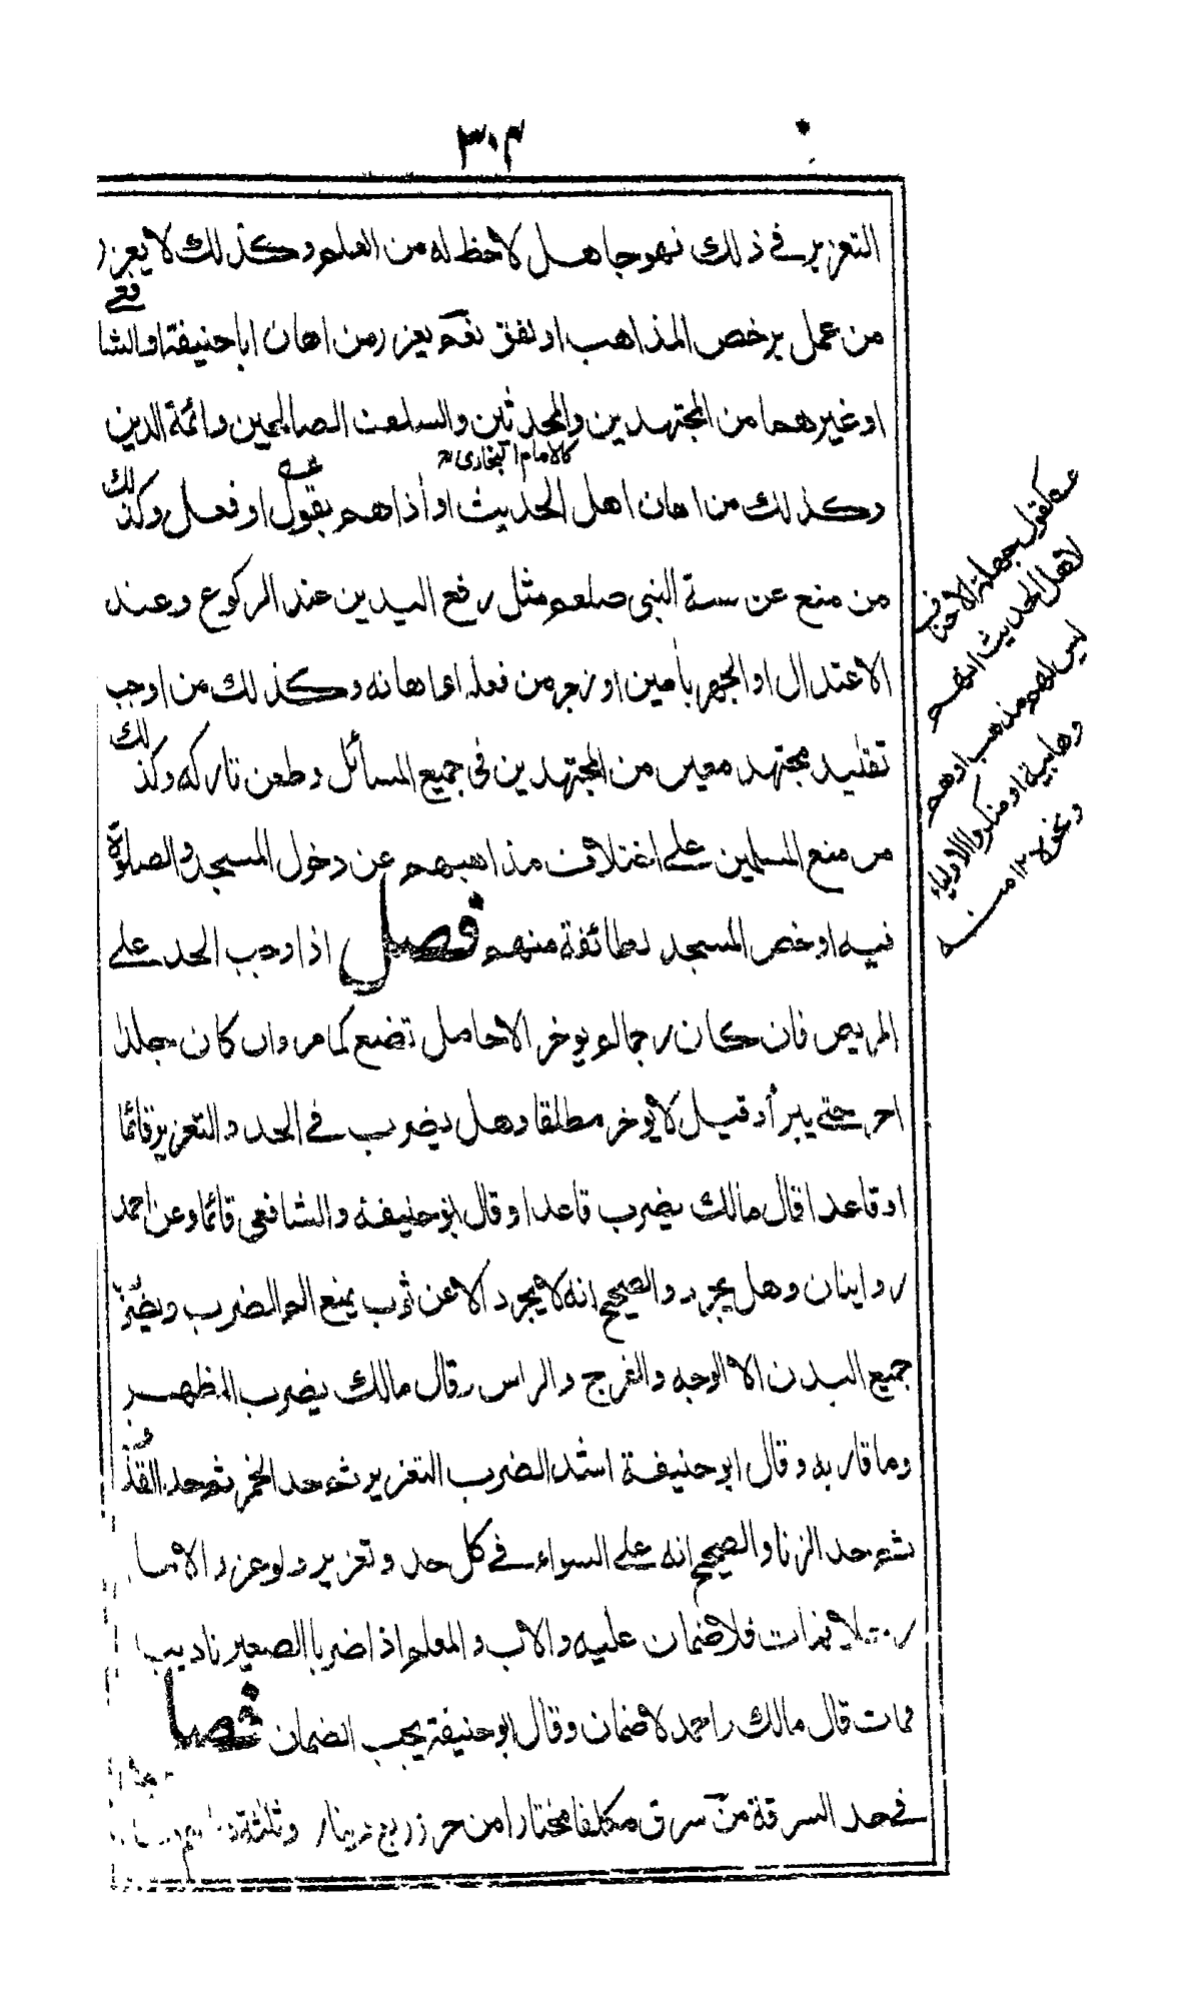 ٣٠٣
التعزير في ذلك فهو جاهل لا حظ له من العلم وكذلك لا يعزر
من عمل برخص المذاهب او لفق نعم يعزر من اهان ابا حنيفة او الشافعي
او غيرهما من المجتهدين والمحدثين والسلف الصالحين وائمة الدين
كالامام البخاري رح
وكذلك من اهان اهل الحديث او أذاهم بقول او فعل وكذلك
من منع عن سنة النبي صلعم مثل رفع اليدين عند الركوع وعند
الاعتدال او الجهر بأمين او زجر من فعله اما هانه وكذلك من اوجب
تقليد مجتهد معين من المجتهدين في جميع المسائل وطعن تاركه وكذلك
من منع المسلمين على اختلاف مذاهبهم عن دخول المسجد والصلوة
فيه او خص المسجد لطائفة منهم فصل اذا وجب الحد على
المريض فان كان رجما لم يوخر الا حامل تضع كما مر وان كان جلدا
اخر حتى يبرأ وقيل لا يوخر مطلقا وهل يضرب في الحد والتعزير قائما
او قاعدا قال مالك يضرب قاعدا وقال ابو حنيفة والشافعي قائما وعن احمد
روايتان وهل يجرد والصحيح انه لا يجرد الا عن ثوب يمنع الم الضرب ويضرب
جميع البدن الا الوجه والفرج والراس وقال مالك يضرب الظهر
وما قاربه وقال ابو حنيفة اشد الضرب التعزير ثم حد الخمر ثم حد القذف
ثم حد الزنا والصحيح انه على السواء في كل حد وتعزير ولو عزر الامام
رجلا فمات فلا ضمان عليه والاب والمعلم اذا ضربا الصغير تاديبا
فمات قال مالك واحمد لا ضمان وقال ابو حنيفة يجب الضمان فصل
في حد السرقة من سرق مكلفا مختارا من حرز ربع دينار وثلثة
عه كقول جهلة الاحناف
لاهل الحديث انهم
ليس لهم مذهب او هم
وهابية او منكروا الاولياء
ونحوه ١٢ منه